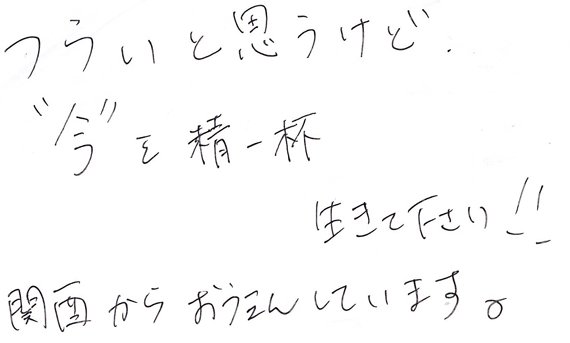 つらいと思うけど、
"今"を精一杯
生きて下さい!!
関西からおうえんしています。